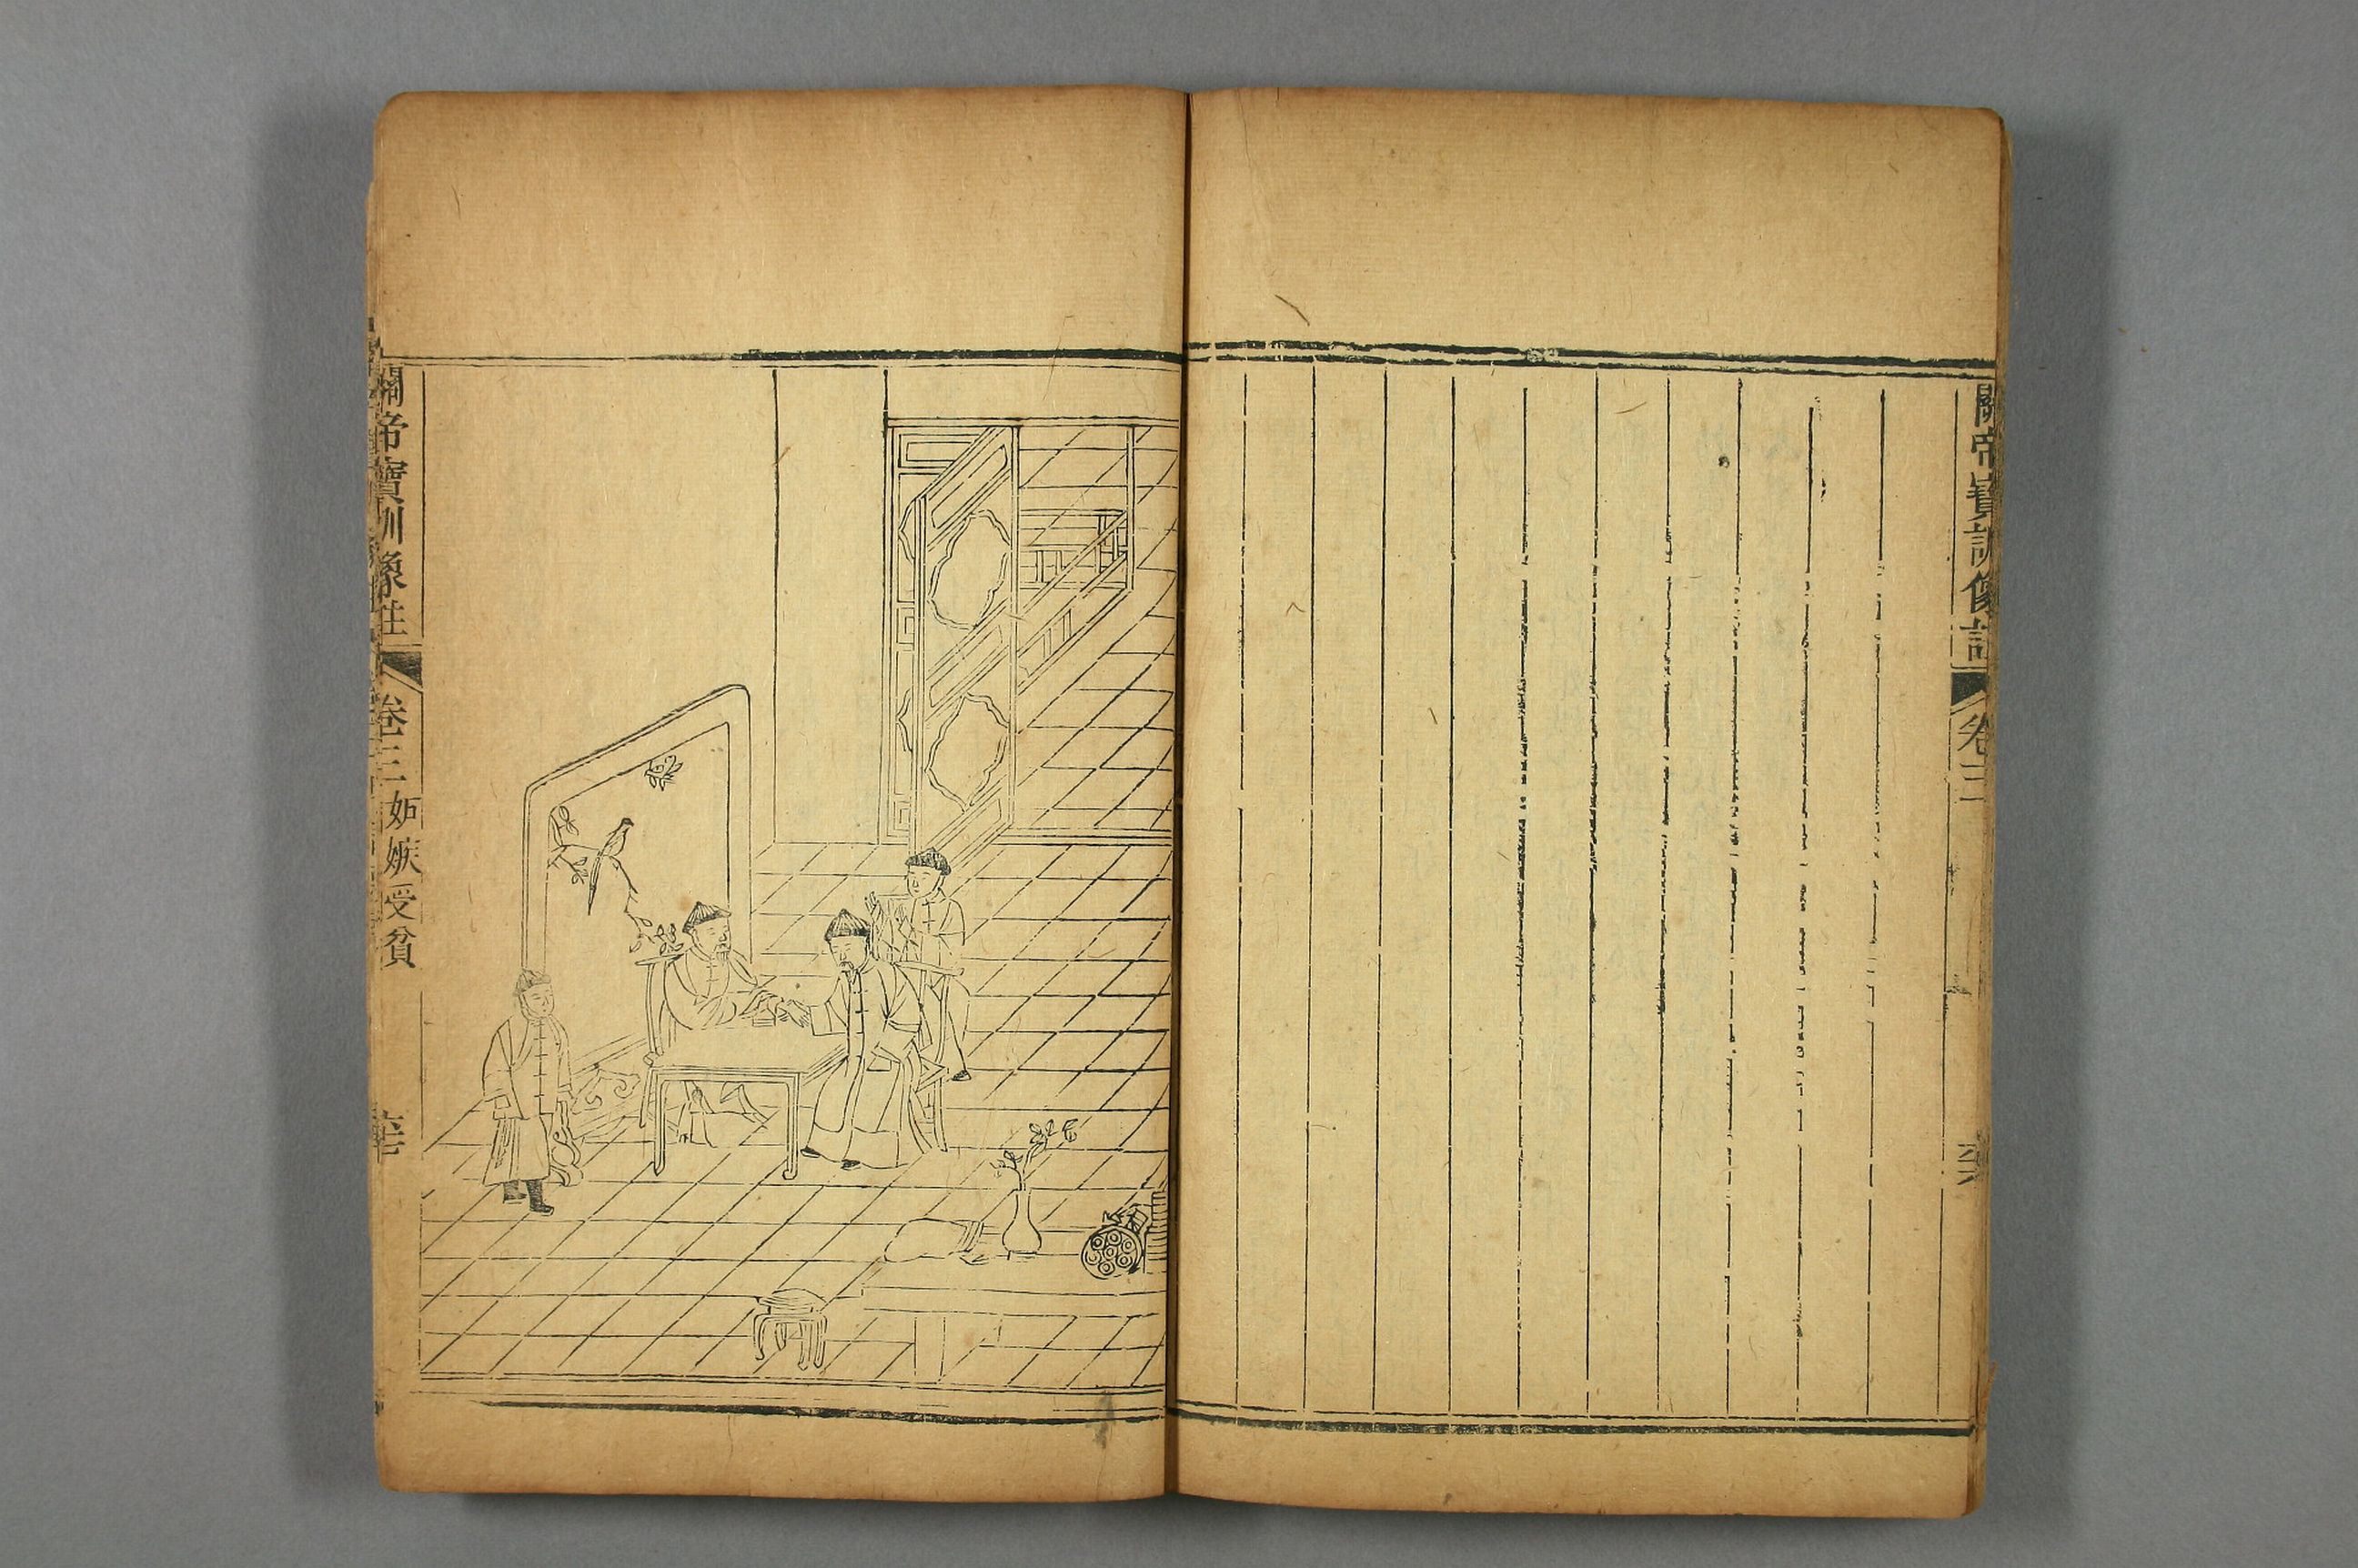 關帝寶訓像註
卷三
關帝寶訓像註
卷三
妒嫉受貧